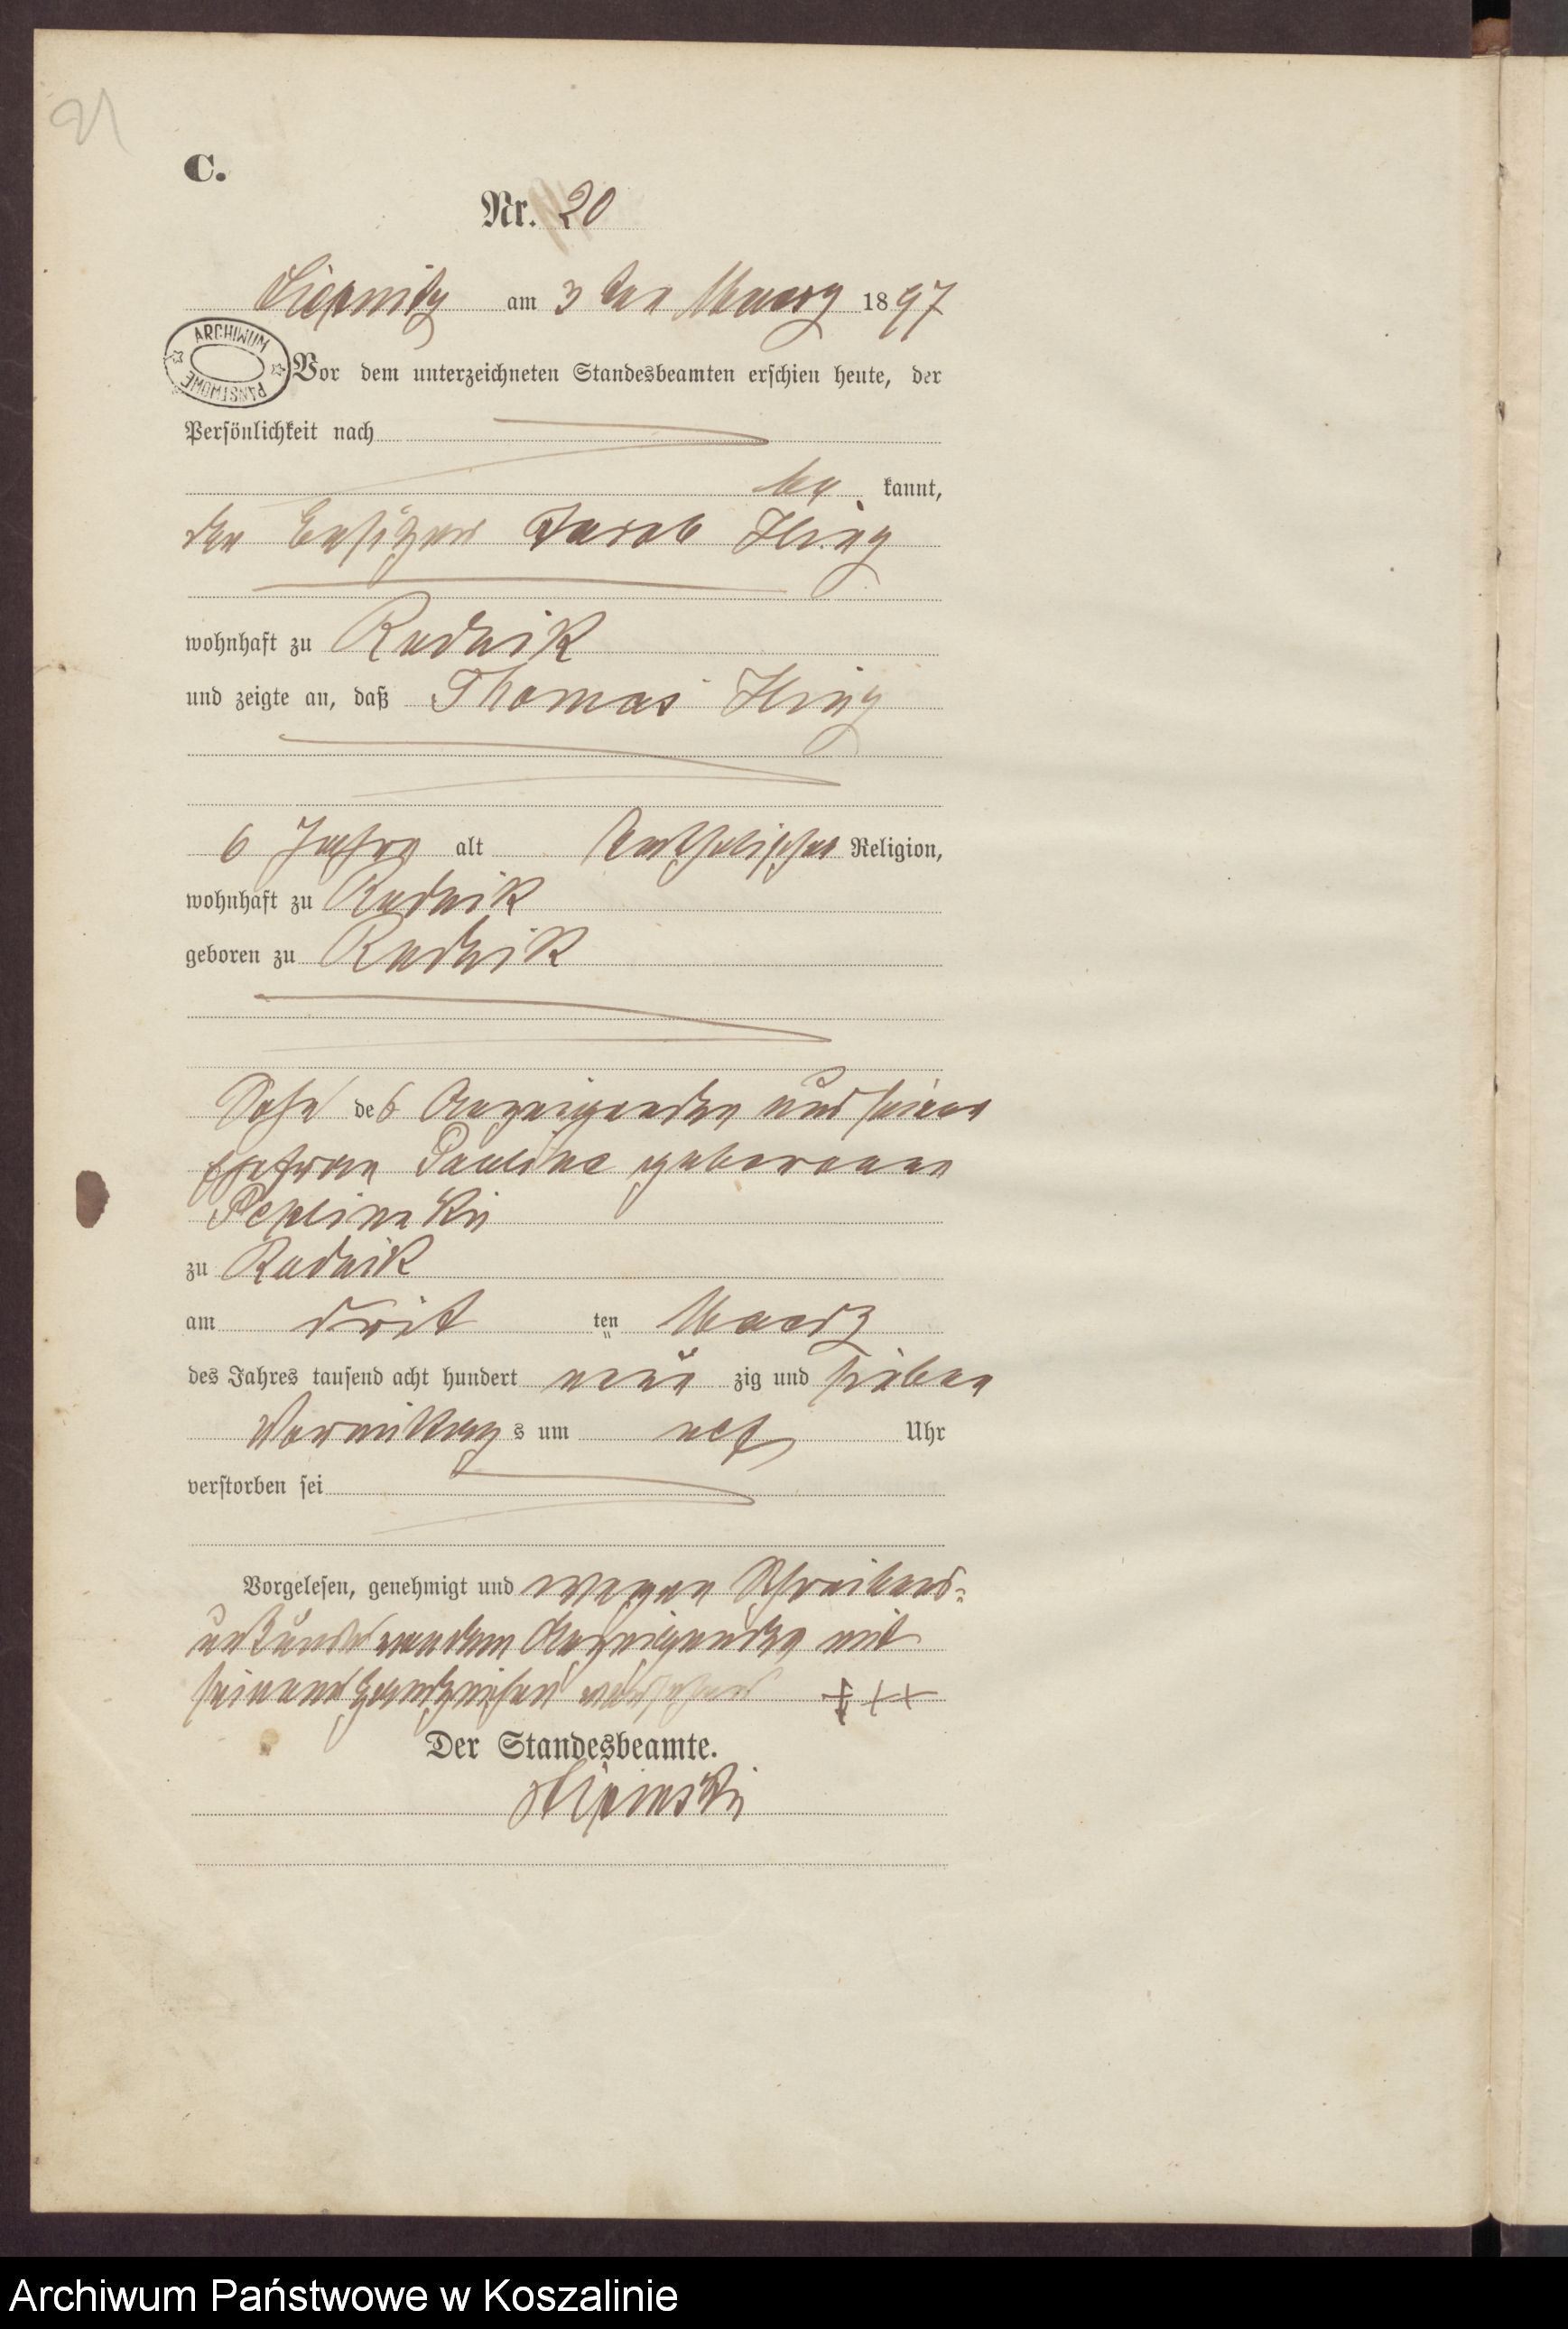 21
C.
Nr. 20
Liepnitz am 3 ten Maerz 1897
ARCHIWUM PAŃSTWOWE
Vor dem unterzeichneten Standesbeamten erschien heute, der
Persönlichkeit nach
be kannt,
der Besitzer Jacob
wohnhaft zu Rudnik
und zeigte an, daß Thomas
6 Jahre alt katholischer Religion,
wohnhaft zu Rudnik
geboren zu Rudnik
Sohn des Anzeigenden und seiner
Ehefrau Pauline geborenen
Peplinski
zu Rudnik
am drit ten Maerz
des Jahres tausend acht hundert neun zig und sieben
Vormittag s um elf Uhr
verstorben sei
Vorgelesen, genehmigt und wegen Schreibens-
unkunde von dem Anzeigenden mit
seinem Handzeichen versehen +++
Der Standesbeamte.
Archiwum Państwowe w Koszalinie